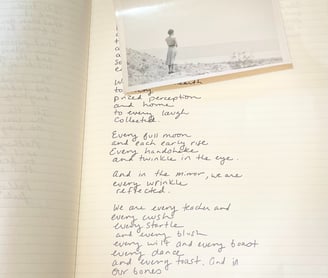 W
to
prized perception
and home
to every laugh
collected.
Every full moon
and each early rise
Every handshake
and twinkle in the eye.
And in the mirror, we are
every wrinkle
reflected.
We are every teacher and
every crush
every startle
and every blush
every wilt and every boast
every dance
and every toast. And in
our bones